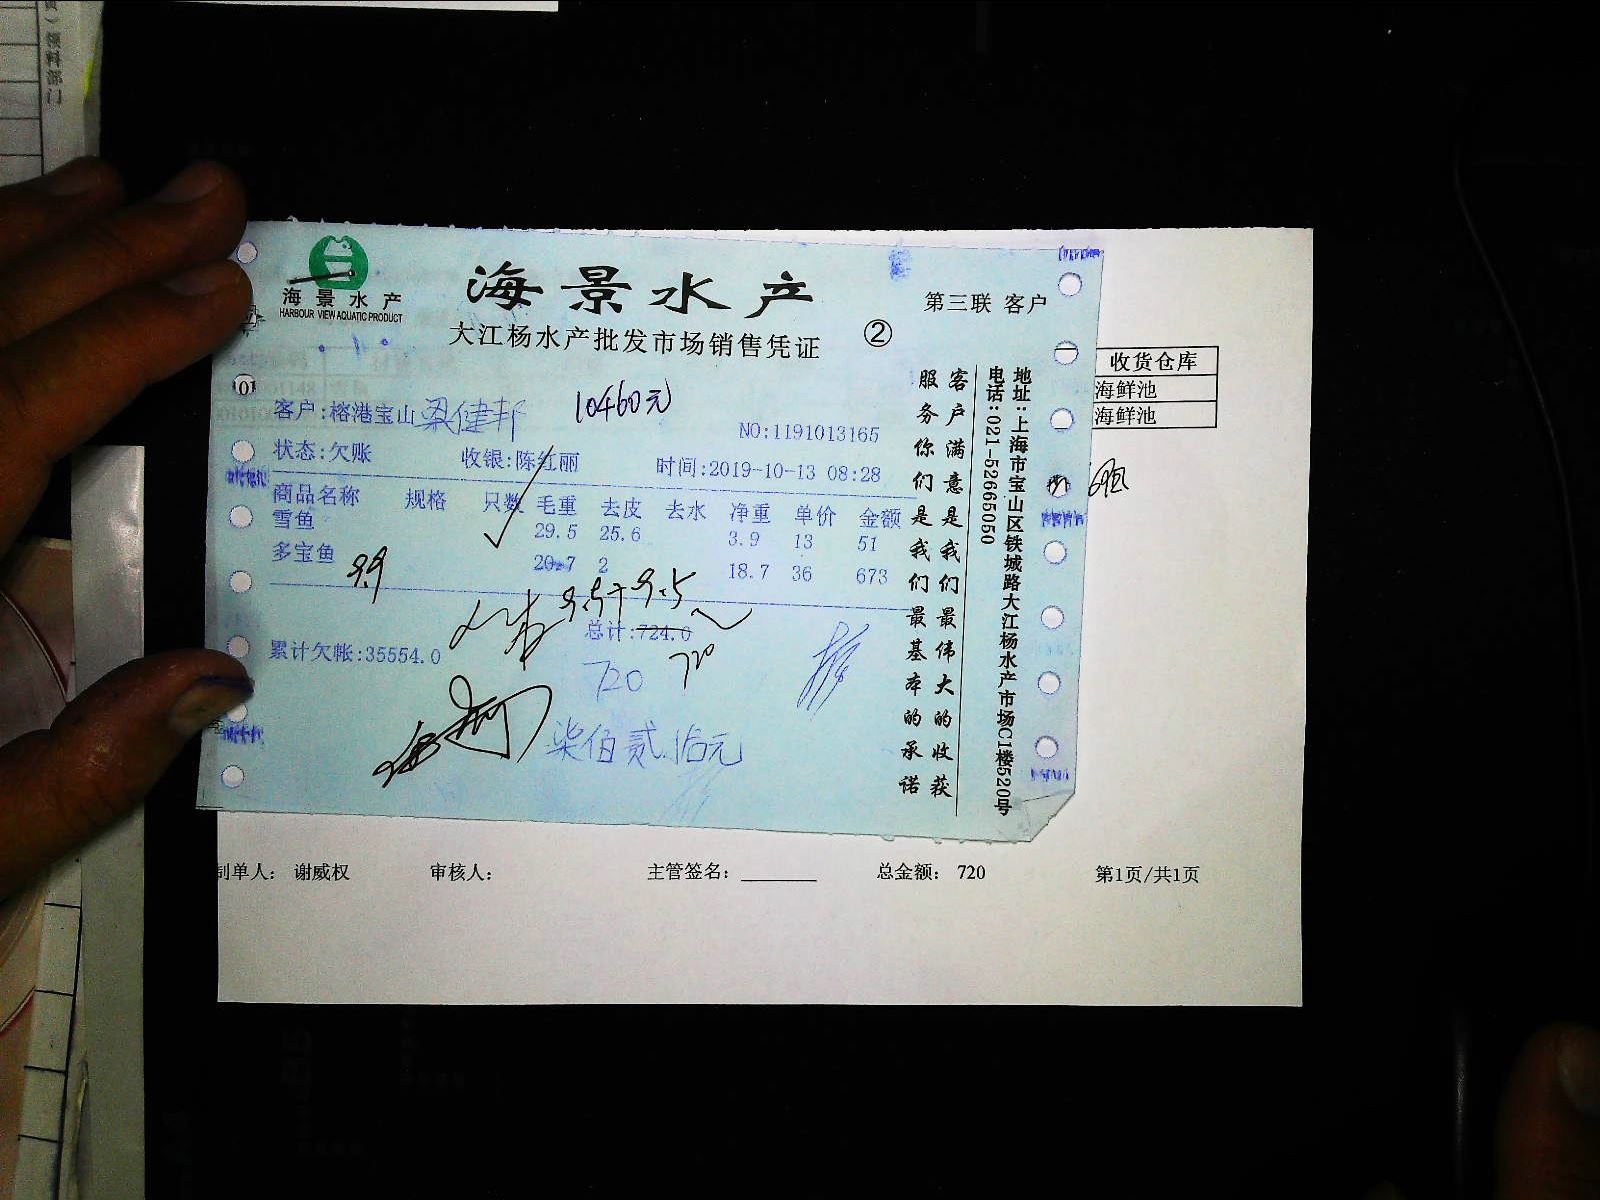 领料部门
海景水产
HARBOUR VIEW AQUATIC PRODUCT
海景水产
大江杨水产批发市场销售凭证
②
第三联 客户
客户:榕港宝山梁健邦
10460元
NO:1191013165
状态:欠账 收银:陈红丽 时间:2019-10-13 08:28
商品名称 规格 只数 毛重 去皮 去水 净重 单价 金额
雪鱼 29.5 25.6 3.9 13 51
多宝鱼 20.7 2 18.7 36 673
9.9
9.5+9.5
总计:724.0
累计欠帐:35554.0
720
720
柒佰贰拾元
客户满意是我们最伟大的收获
服务你们是我们最基本的承诺
地址:上海市宝山区铁城路大江杨水产市场C1楼520号
电话:021-52665050
收货仓库
海鲜池
海鲜池
制单人: 谢威权 审核人: 主管签名: 总金额: 720 第1页/共1页